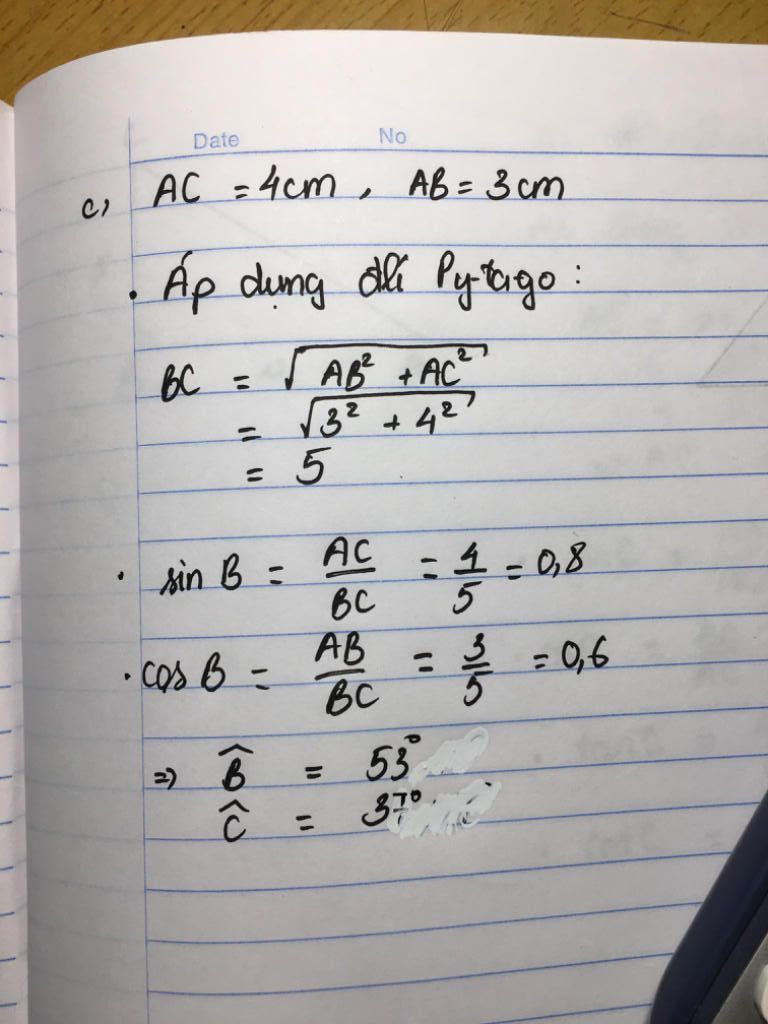 Date No
c, AC = 4cm, AB = 3cm
. Áp dụng đlí Py-tago :
BC = √AB² + AC²
= √3² + 4²
= 5
. sin B = AC/BC = 4/5 = 0,8
. cos B = AB/BC = 3/5 = 0,6
=> B̂ = 53°
Ĉ = 37°